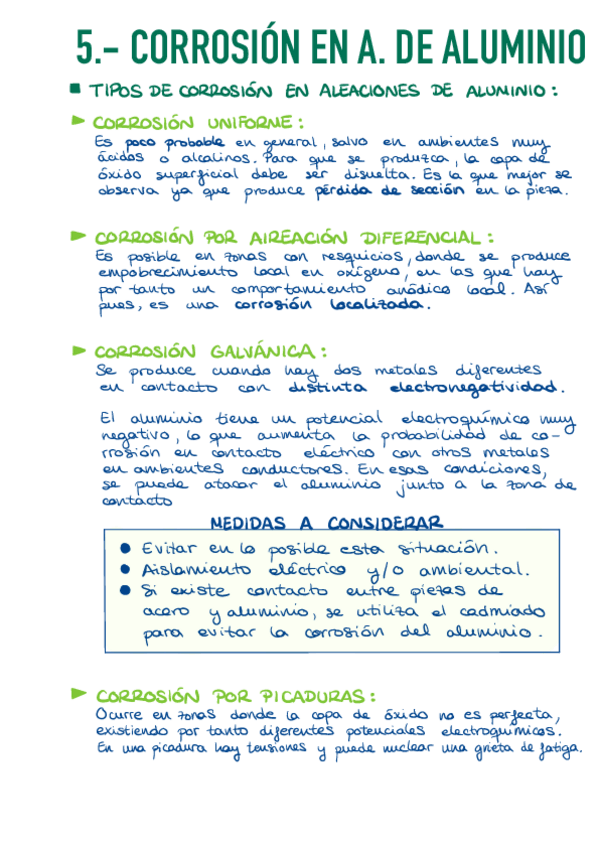 5.- CORROSIÓN EN A. DE ALUMINIO
TIPOS DE CORROSIÓN EN ALEACIONES DE ALUMINIO:
CORROSIÓN UNIFORME:
Es poco probable en general, salvo en ambientes muy
ácidos o alcalinos. Para que se produzca, la capa de
óxido superficial debe ser disuelta. Es la que mejor se
observa ya que produce pérdida de sección en la pieza.
CORROSIÓN POR AIREACIÓN DIFERENCIAL:
Es posible en zonas con resquicios, donde se produce
empobrecimiento local en oxígeno, en las que hay
por tanto un comportamiento anódico local. Así
pues, es una corrosión localizada.
CORROSIÓN GALVÁNICA:
Se produce cuando hay dos metales diferentes
en contacto con distinta electronegatividad.
El aluminio tiene un potencial electroquímico muy
negativo, lo que aumenta la probabilidad de co-
rrosión en contacto eléctrico con otros metales
en ambientes conductores. En esas condiciones,
se puede atacar el aluminio junto a la zona de
contacto
MEDIDAS A CONSIDERAR
● Evitar en lo posible esta situación.
● Aislamiento eléctrico y/o ambiental.
● Si existe contacto entre piezas de
acero y aluminio, se utiliza el cadmiado
para evitar la corrosión del aluminio.
CORROSIÓN POR PICADURAS:
Ocurre en zonas donde la capa de óxido no es perfecta,
existiendo por tanto diferentes potenciales electroquímicos.
En una picadura hay tensiones y puede nuclear una grieta de fatiga.